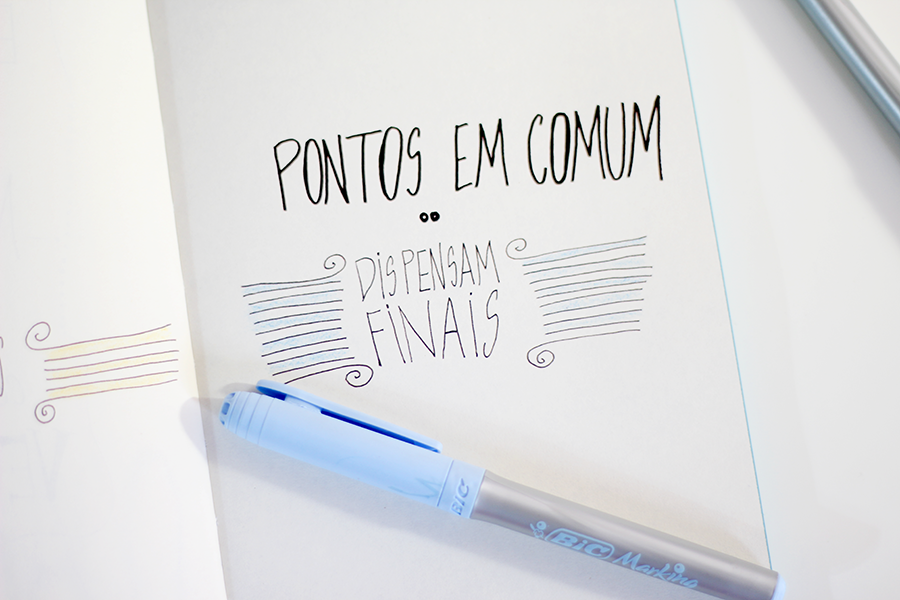 PONTOS EM COMUM
DISPENSAM
FINAIS
BIC
BIC Marking